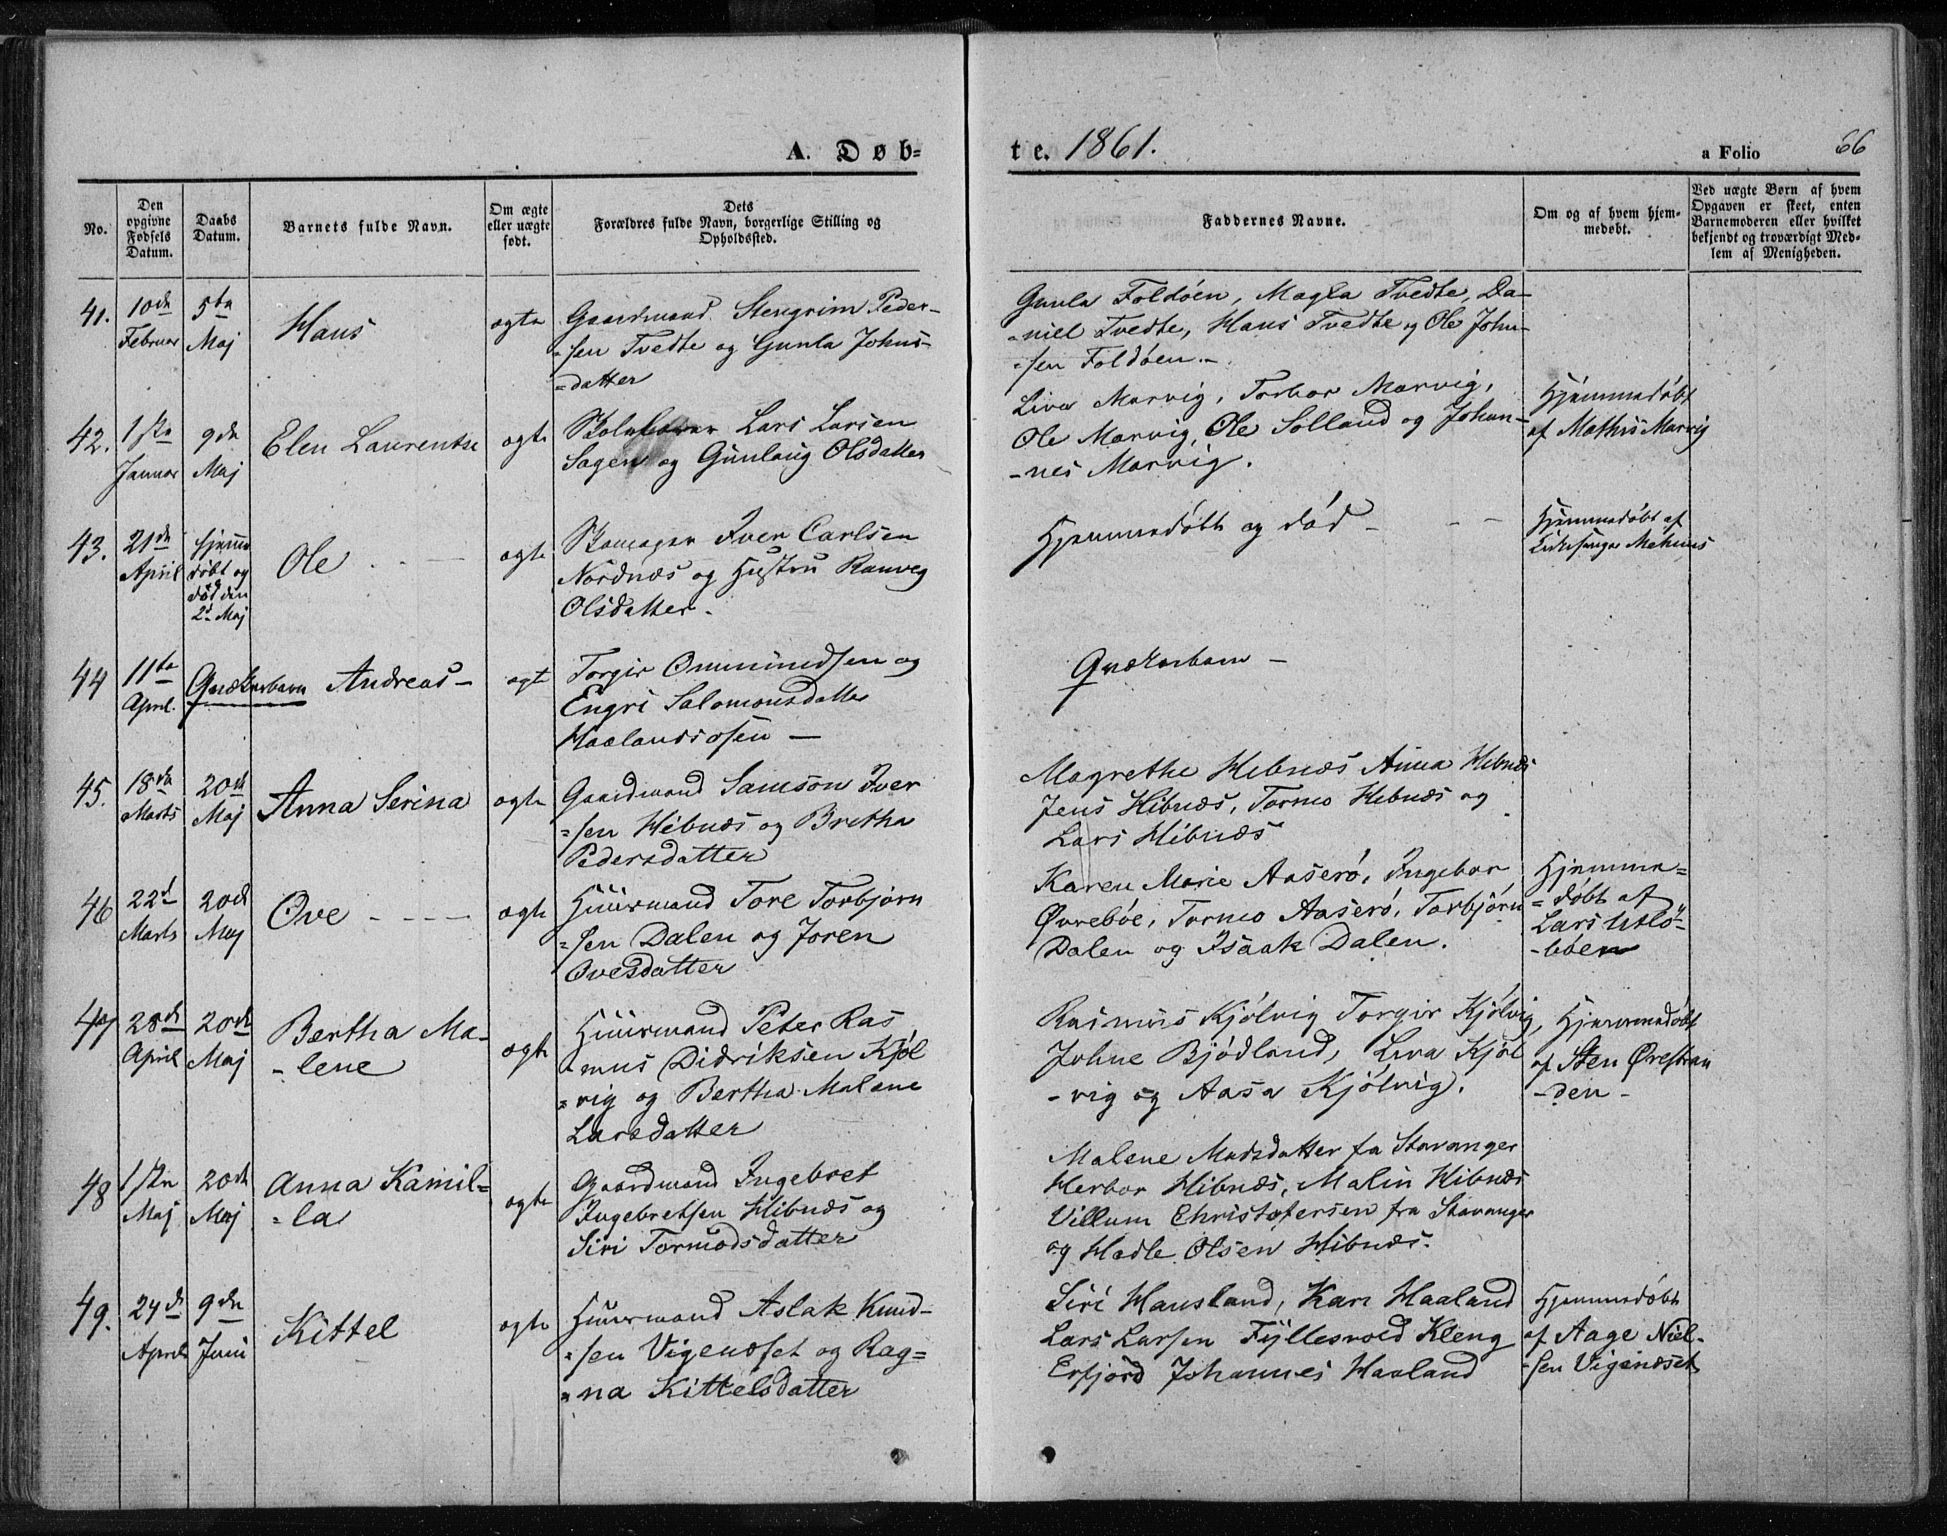 A. Døb-
te. 1861.
a Folio 66
No.
Den opgivne Fødsels Datum.
Daabs Datum.
Barnets fulde Navn.
Om ægte eller uægte født.
Dets Forældres fulde Navn, borgerlige Stilling og Opholdssted.
Faddernes Navne.
Om og af hvem hjem-
medøbt.
Ved uægte Børn af hvem
Opgaven er skeet, enten
Barnemoderen eller hvilket
bekjendt og troværdigt Med-
lem af Menigheden.
41.
10de Februar
5te Maj
Hans
ægte
Gaardmand Stengrim Peder-
=sen Tvedte og Gunla Johns-
=datter
Gunla Foldøen, Magla Tvedte, Da-
-niel Tvedte, Hans Tvedte og Ole John-
=sen Foldøen.-
42.
1ste Januar
9de Maj
Elen Laurentse
ægte
Skolelærer Lars Larsen
Sagen og Gunlaug Olsdatter
Liva Marvig, Torbor Marvig,
Ole Marvig, Ole Solland og Johan-
-nes Marvig.
Hjemmedøbt
af Mathis Marvig
43.
21de April
hjemme
døbt og
død den
2d Maj
Ole
ægte
Skomager Iver Carlsen
Nordnæs og Hustru Ranveg
Olsdatter.
Hjemmedøbt og død -
Hjemmedøbt af
Kirkesanger Mehuus
44
11te April.
Qvækerbarn Andreas-
ægte
Torgir Ommundsen og
Engri Salomonsdatter
Haalandsosen -
Qvækerbarn -
45.
18de Marts
20de Maj
Anna Serina
ægte
Gaardmand Samson Iver
=sen Hebnæs og Bretha
Pedersdatter
Magrethe Hebnæs Anna Hebnæs
Jens Hibnæs, Tormo Hebnæs og
Lars Hibnæs
46
22d Marts
20de Maj
Ove - - - -
ægte
Huusmand Tore Torbjørn
=sen Dalen og Joren
Ovesdatter
Karen Marie Aaserø, Ingebor
Øvrebøe, Tormo Aaserø, Torbjørn
Dalen og Isaak Dalen.
Hjemme=
=døbt af
Lars Utlø-
-bøen
47
28de April
20de Maj
Bertha Ma-
-lene
ægte
Huusmand Peter Ras
mus Didriksen Kjøl
=vig og Bertha Malene
Larsdatter
Rasmus Kjølvig Torgir Kjølvig,
Johne Bjødland, Liva Kjøl
-vig og Aasa Kjølvig.
Hjemmedøbt
af Sten Østran
-den -
48
1ste Maj
20de Maj
Anna Kamil=
=la
ægte
Gaardmand Ingebret
Ingebretsen Hibnæs og
Siri Tormodsdatter
Malene Madsdatter fra Stavanger
Herbor Hibnæs, Malin Hibnæs
Villum Christofersen fra Stavanger
og Hadle Olsen Hibnæs.
49.
24de April
9de Juni
Kittel
ægte
Huusmand Aslak Knud-
=sen Vigenæset og Rag=
=na Kittelsdatter
Siri Hausland, Kari Haaland
Lars Larsen Fyllesvold Kleng
Erfjord Johannes Haaland
Hjemmedøbt
af Aage Niel-
=sen Vigenæset